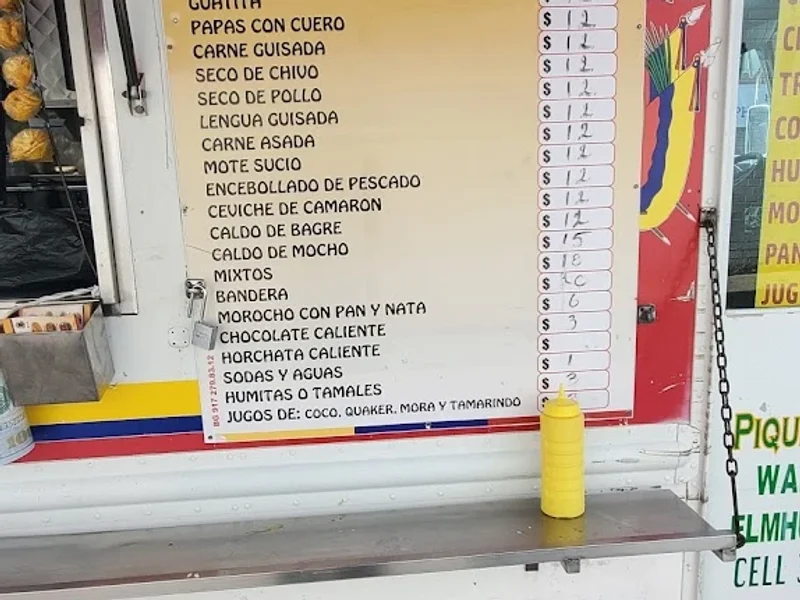 GUATITA
PAPAS CON CUERO $ 12
CARNE GUISADA $ 12
SECO DE CHIVO $ 12
SECO DE POLLO $ 12
LENGUA GUISADA $ 12
CARNE ASADA $ 12
MOTE SUCIO $ 12
ENCEBOLLADO DE PESCADO $ 12
CEVICHE DE CAMARON $ 12
CALDO DE BAGRE $ 12
CALDO DE MOCHO $ 15
MIXTOS $ 18
BANDERA $
MOROCHO CON PAN Y NATA $ 6
CHOCOLATE CALIENTE $ 3
HORCHATA CALIENTE $
SODAS Y AGUAS $ 1
HUMITAS O TAMALES $ 3
JUGOS DE: COCO, QUAKER, MORA Y TAMARINDO $
BG 917 270.83.12
CO
HU
MO
PAN
JUG
PIQU
WA
ELMH
CELL